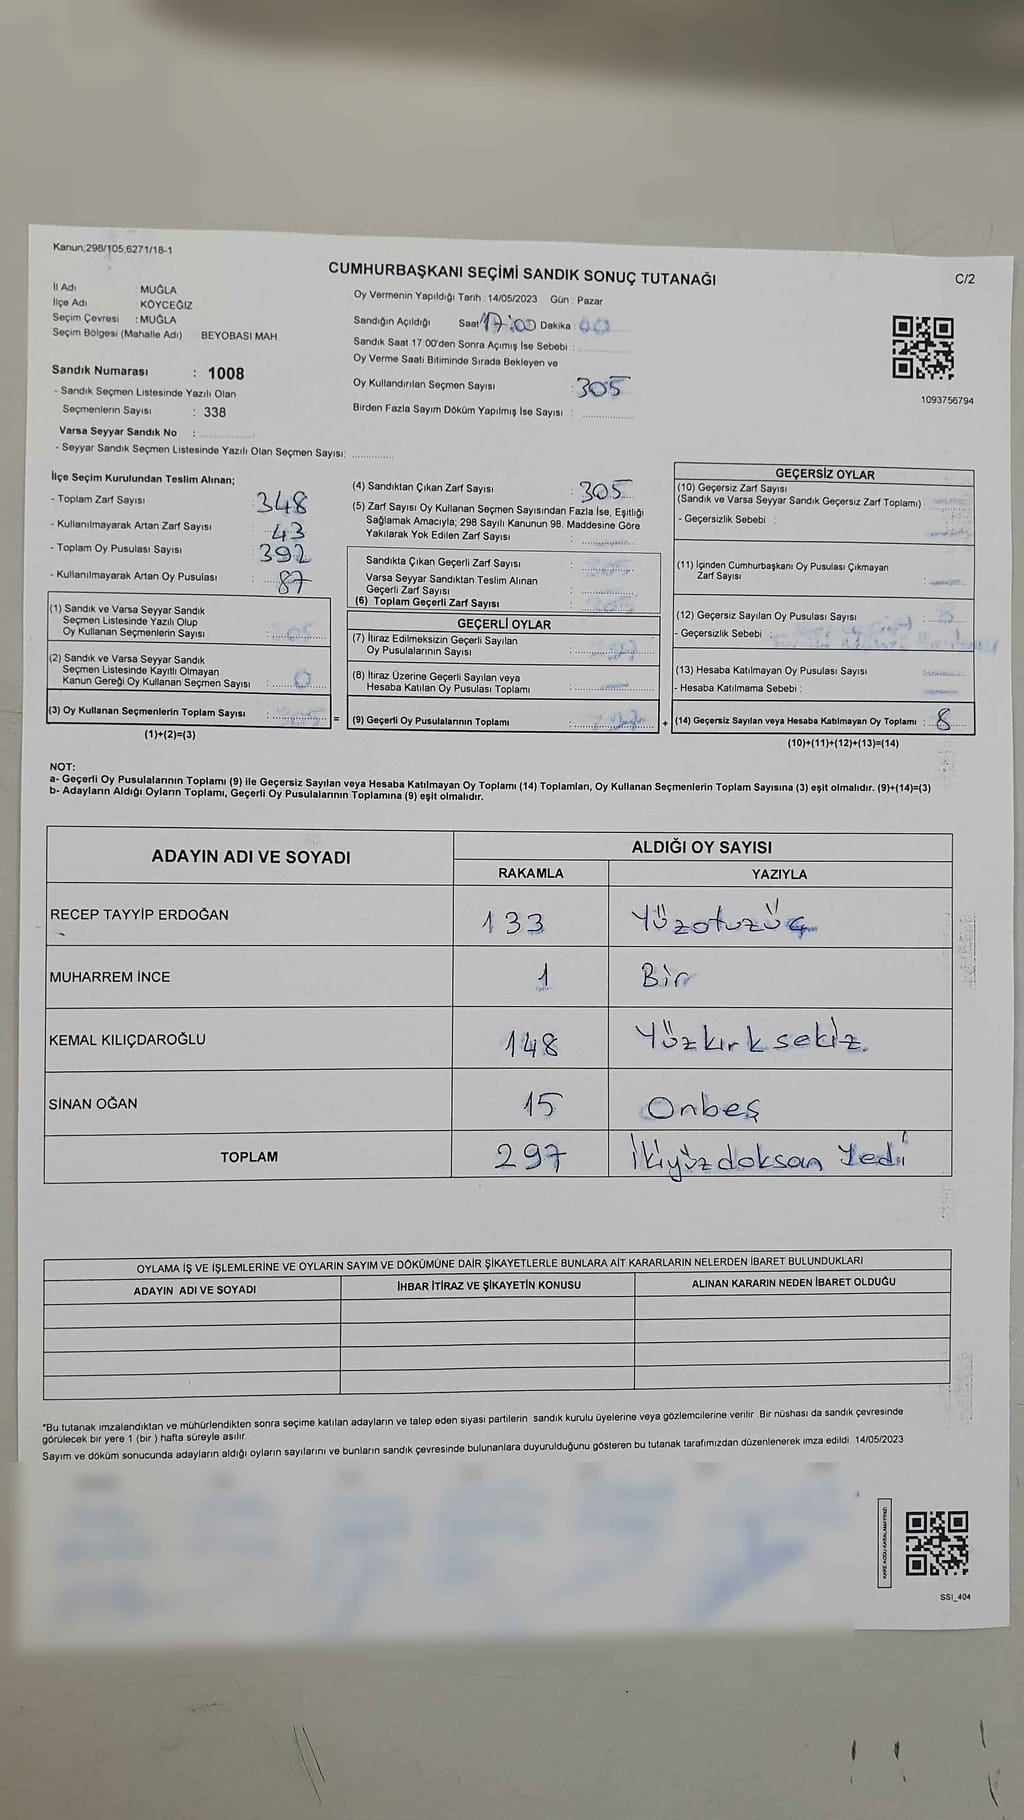 Kanun,298/105,6271/18-1
CUMHURBAŞKANI SEÇİMİ SANDIK SONUÇ TUTANAĞI
C/2
İl Adı : MUĞLA
İlçe Adı : KÖYCEĞİZ
Seçim Çevresi : MUĞLA
Seçim Bölgesi (Mahalle Adı) : BEYOBASI MAH
Sandık Numarası : 1008
- Sandık Seçmen Listesinde Yazılı Olan
Seçmenlerin Sayısı : 338
Varsa Seyyar Sandık No :
- Seyyar Sandık Seçmen Listesinde Yazılı Olan Seçmen Sayısı:
Oy Vermenin Yapıldığı Tarih : 14/05/2023 Gün : Pazar
Sandığın Açıldığı Saat 17:00 Dakika :
Sandık Saat 17:00'den Sonra Açımış İse Sebebi :
Oy Verme Saati Bitiminde Sırada Bekleyen ve
Oy Kullandırılan Seçmen Sayısı : 305
Birden Fazla Sayım Döküm Yapılmış İse Sayısı :
1093756794
İlçe Seçim Kurulundan Teslim Alınan;
- Toplam Zarf Sayısı : 348
- Kullanılmayarak Artan Zarf Sayısı : 43
- Toplam Oy Pusulası Sayısı : 392
- Kullanılmayarak Artan Oy Pusulası : 87
(1) Sandık ve Varsa Seyyar Sandık
Seçmen Listesinde Yazılı Olup
Oy Kullanan Seçmenlerin Sayısı :
(2) Sandık ve Varsa Seyyar Sandık
Seçmen Listesinde Kayıtlı Olmayan
Kanun Gereği Oy Kullanan Seçmen Sayısı : 0
(3) Oy Kullanan Seçmenlerin Toplam Sayısı :
(1)+(2)=(3)
=
(4) Sandıktan Çıkan Zarf Sayısı : 305
(5) Zarf Sayısı Oy Kullanan Seçmen Sayısından Fazla İse, Eşitliği
Sağlamak Amacıyla; 298 Sayılı Kanunun 98. Maddesine Göre
Yakılarak Yok Edilen Zarf Sayısı :
Sandıkta Çıkan Geçerli Zarf Sayısı :
Varsa Seyyar Sandıktan Teslim Alınan
Geçerli Zarf Sayısı :
(6) Toplam Geçerli Zarf Sayısı :
GEÇERLİ OYLAR
(7) İtiraz Edilmeksizin Geçerli Sayılan
Oy Pusulalarının Sayısı :
(8) İtiraz Üzerine Geçerli Sayılan veya
Hesaba Katılan Oy Pusulası Toplamı :
(9) Geçerli Oy Pusulalarının Toplamı :
+
GEÇERSİZ OYLAR
(10) Geçersiz Zarf Sayısı
(Sandık ve Varsa Seyyar Sandık Geçersiz Zarf Toplamı) :
- Geçersizlik Sebebi :
(11) İçinden Cumhurbaşkanı Oy Pusulası Çıkmayan
Zarf Sayısı :
(12) Geçersiz Sayılan Oy Pusulası Sayısı : 8
- Geçersizlik Sebebi :
(13) Hesaba Katılmayan Oy Pusulası Sayısı :
- Hesaba Katılmama Sebebi :
(14) Geçersiz Sayılan veya Hesaba Katılmayan Oy Toplamı : 8
(10)+(11)+(12)+(13)=(14)
NOT:
a- Geçerli Oy Pusulalarının Toplamı (9) ile Geçersiz Sayılan veya Hesaba Katılmayan Oy Toplamı (14) Toplamları, Oy Kullanan Seçmenlerin Toplam Sayısına (3) eşit olmalıdır. (9)+(14)=(3)
b- Adayların Aldığı Oyların Toplamı, Geçerli Oy Pusulalarının Toplamına (9) eşit olmalıdır.
ADAYIN ADI VE SOYADI
ALDIĞI OY SAYISI
RAKAMLA YAZIYLA
RECEP TAYYİP ERDOĞAN 133 Yüzotuzüç
MUHARREM İNCE 1 Bir
KEMAL KILIÇDAROĞLU 148 Yüzkırksekiz.
SİNAN OĞAN 15 Onbeş
TOPLAM 297 İkiyüzdoksan Yedi
OYLAMA İŞ VE İŞLEMLERİNE VE OYLARIN SAYIM VE DÖKÜMÜNE DAİR ŞİKAYETLERLE BUNLARA AİT KARARLARIN NELERDEN İBARET BULUNDUKLARI
ADAYIN ADI VE SOYADI İHBAR İTİRAZ VE ŞİKAYETİN KONUSU ALINAN KARARIN NEDEN İBARET OLDUĞU
*Bu tutanak imzalandıktan ve mühürlendikten sonra seçime katılan adayların ve talep eden siyasi partilerin sandık kurulu üyelerine veya gözlemcilerine verilir .Bir nüshası da sandık çevresinde
görülecek bir yere 1 (bir ) hafta süreyle asılır.
Sayım ve döküm sonucunda adayların aldığı oyların sayılarını ve bunların sandık çevresinde bulunanlara duyurulduğunu gösteren bu tutanak tarafımızdan düzenlenerek imza edildi. 14/05/2023
KARE KODU KARALAMAYINIZ!
SSI_404